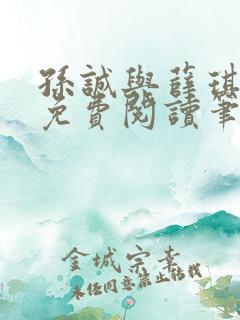 孫誠與薛琪
免費閱讀筆
金城宗素
未經同意禁止轉載